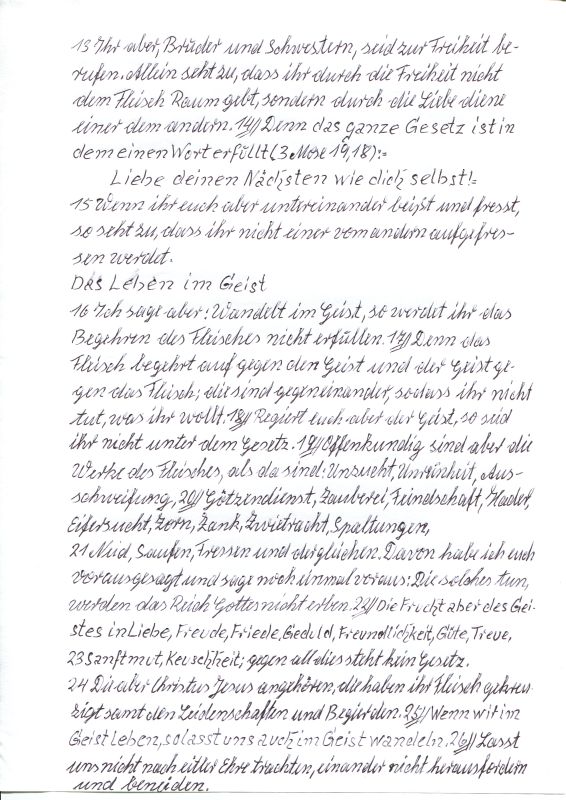 13 Ihr aber, Brüder und Schwestern, seid zur Freiheit be-
rufen. Allein seht zu, dass ihr durch die Freiheit nicht
dem Fleisch Raum gebt, sondern durch die Liebe diene
einer dem andern. 14// Denn das ganze Gesetz ist in
dem einen Wort erfüllt (3 Mose 19,18):=
Liebe deinen Nächsten wie dich selbst!=
15 Wenn ihr euch aber untereinander beißt und fresst,
so seht zu, dass ihr nicht einer vom andern aufgefres-
sen werdet.
Das Leben im Geist
16 Ich sage aber: Wandelt im Geist, so werdet ihr das
Begehren des Fleisches nicht erfüllen. 17// Denn das
Fleisch begehrt auf gegen den Geist und der Geist ge-
gen das Fleisch; die sind gegeneinander, sodass ihr nicht
tut, was ihr wollt. 18// Regiert euch aber der Geist, so seid
ihr nicht unter dem Gesetz. 19// Offenkundig sind aber die
Werke des Fleisches, als da sind: Unzucht, Unreinheit, Aus-
schweifung, 20// Götzendienst, Zauberei, Feindschaft, Hader,
Eifersucht, Zorn, Zank, Zwietracht, Spaltungen,
21 Neid, Saufen, Fressen und dergleichen. Davon habe ich euch
vorausgesagt und sage noch einmal voraus: Die solches tun,
werden das Reich Gottes nicht erben. 22// Die Frucht aber des Gei-
stes in Liebe, Freude, Friede, Geduld, Freundlichkeit, Güte, Treue,
23 Sanftmut, Keuschheit; gegen all dies steht kein Gesetz.
24 Die aber Christus Jesus angehören, die haben ihr Fleisch gekreu-
zigt samt den Leidenschaften und Begierden. 25// Wenn wir im
Geist leben, so lasst uns auch im Geist wandeln. 26// Lasst
uns nicht nach eitler Ehre trachten, einander nicht herausfordern
und beneiden.